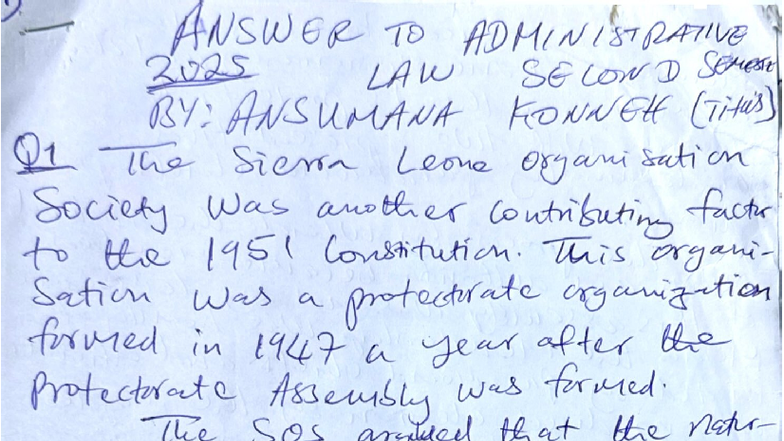 ANSWER TO ADMINISTRATIVE
2025 LAW SECOND SEMESTER
BY: ANSUMANA KONNEH (Titus)
Q1 The Sierra Leone organisation
Society was another contributing factor
to the 1951 Constitution. This organi-
sation was a protectorate organization
formed in 1947 a year after the
protectorate Assembly was formed.
The SOS argued that the natur-